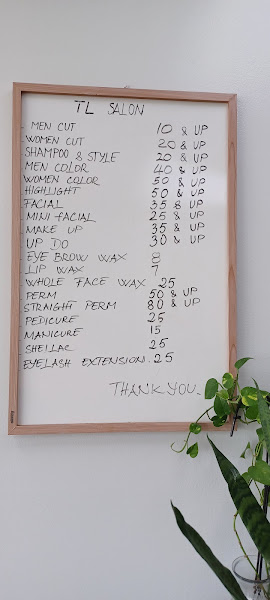 TL SALON
MEN CUT 10 & UP
WOMEN CUT 20 & UP
SHAMPOO & STYLE 20 & UP
MEN COLOR 40 & UP
WOMEN COLOR 50 & UP
HIGHLIGHT 50 & UP
FACIAL 35 & UP
MINI FACIAL 25 & UP
MAKE UP 35 & UP
UP DO 30 & UP
EYE BROW WAX 8
LIP WAX 7
WHOLE FACE WAX 25
PERM 50 & UP
STRAIGHT PERM 80 & UP
PEDICURE 25
MANICURE 15
SHELLAC 25
EYELASH EXTENSION. 25
THANK YOU.